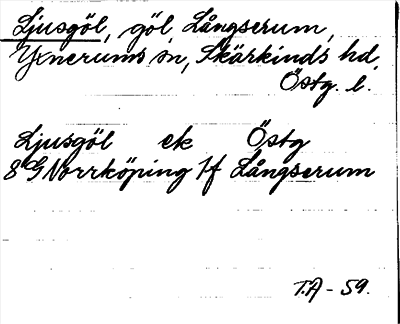 Ljusgöl, göl, Långserum,
Yxnerums sn, Skärkinds hd,
Östg. l.
Ljusgöl ek Östg
8G Norrköping 1f Långserum
T.A - 59.